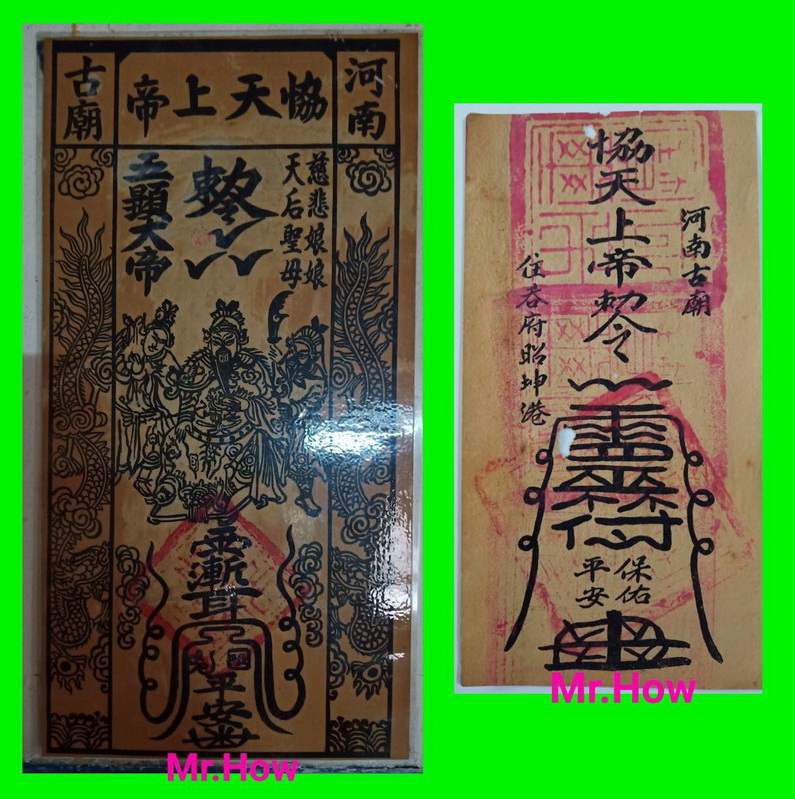 古廟
協天上帝
河南
慈悲娘娘
天后聖母
敕令
五顯大帝
平安
Mr.How
河南古廟
協天上帝勅令
住吞府昭坤港
保佑
平安
Mr.How